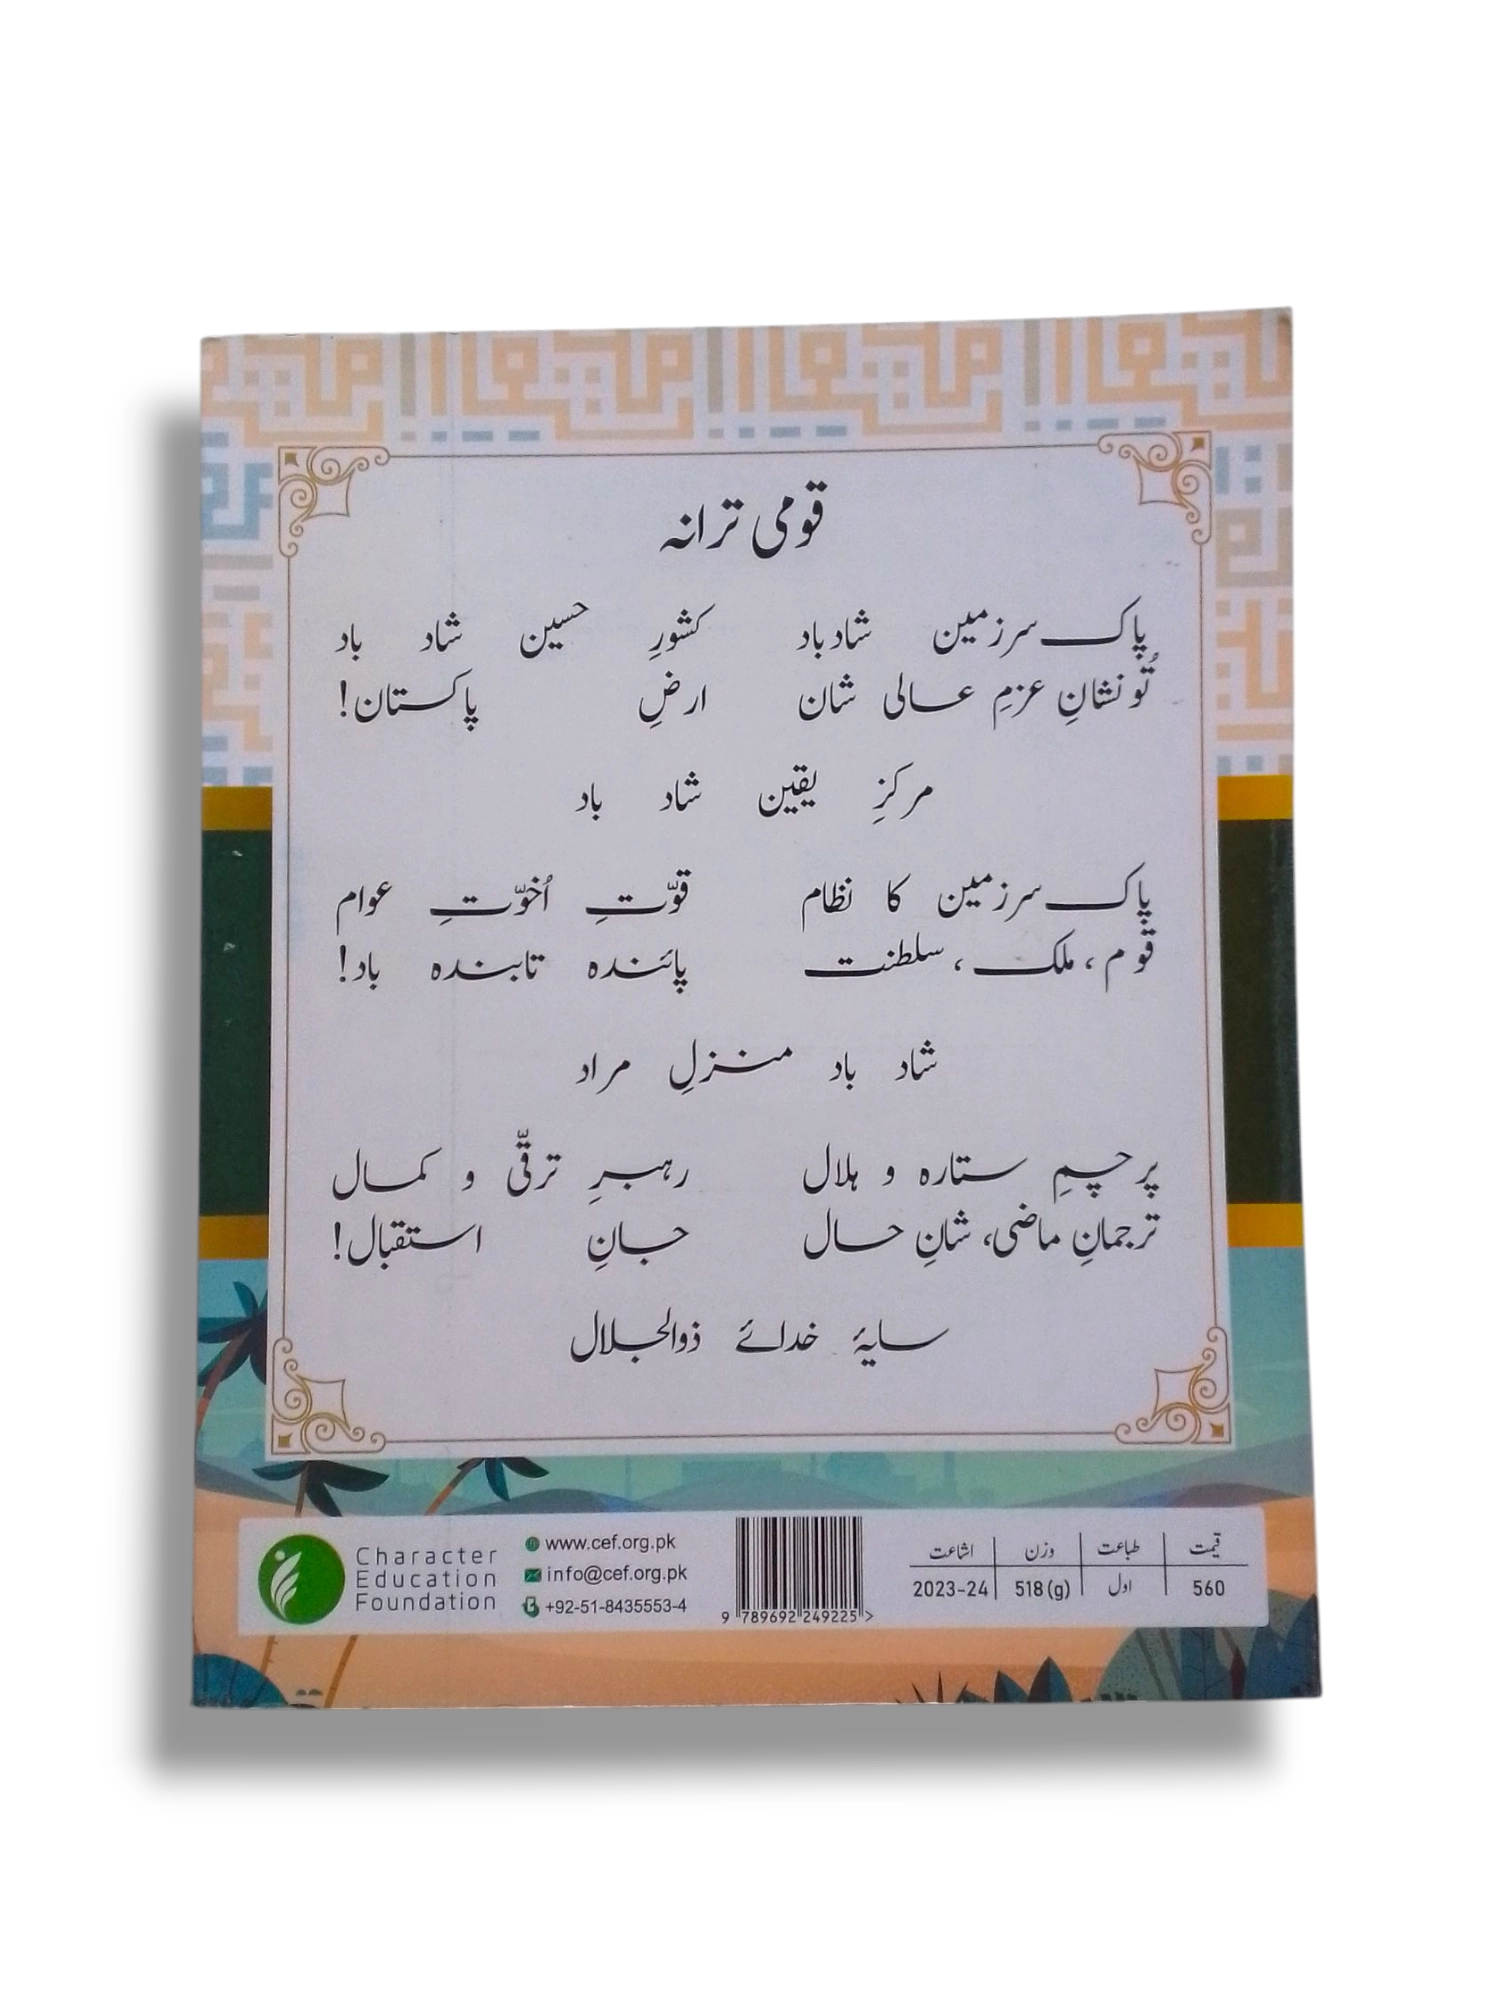 قومی ترانہ
پاک سرزمین شاد باد کشورِ حسین شاد باد
تُو نشانِ عزمِ عالی شان ارضِ پاکستان!
مرکزِ یقین شاد باد
پاک سرزمین کا نظام قوّتِ اُخوّتِ عوام
قوم، ملک، سلطنت پائندہ تابندہ باد!
شاد باد منزلِ مراد
پرچمِ ستارہ و ہلال رہبرِ ترقّی و کمال
ترجمانِ ماضی، شانِ حال جانِ استقبال!
سایۂ خدائے ذوالجلال
Character
Education
Foundation
www.cef.org.pk
info@cef.org.pk
+92-51-8435553-4
9 789692 249225 >
قیمت طباعت وزن اشاعت
560 اول 518 (g) 2023-24